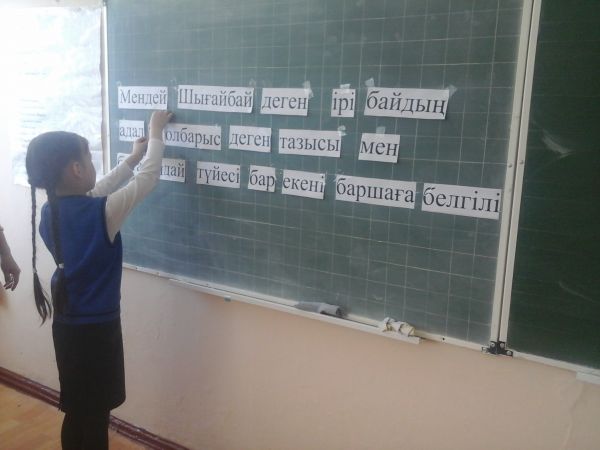 Мендей Шығайбай деген ірі байдың
адал деген тазысы мен
түйесі бар екені баршаға белгілі